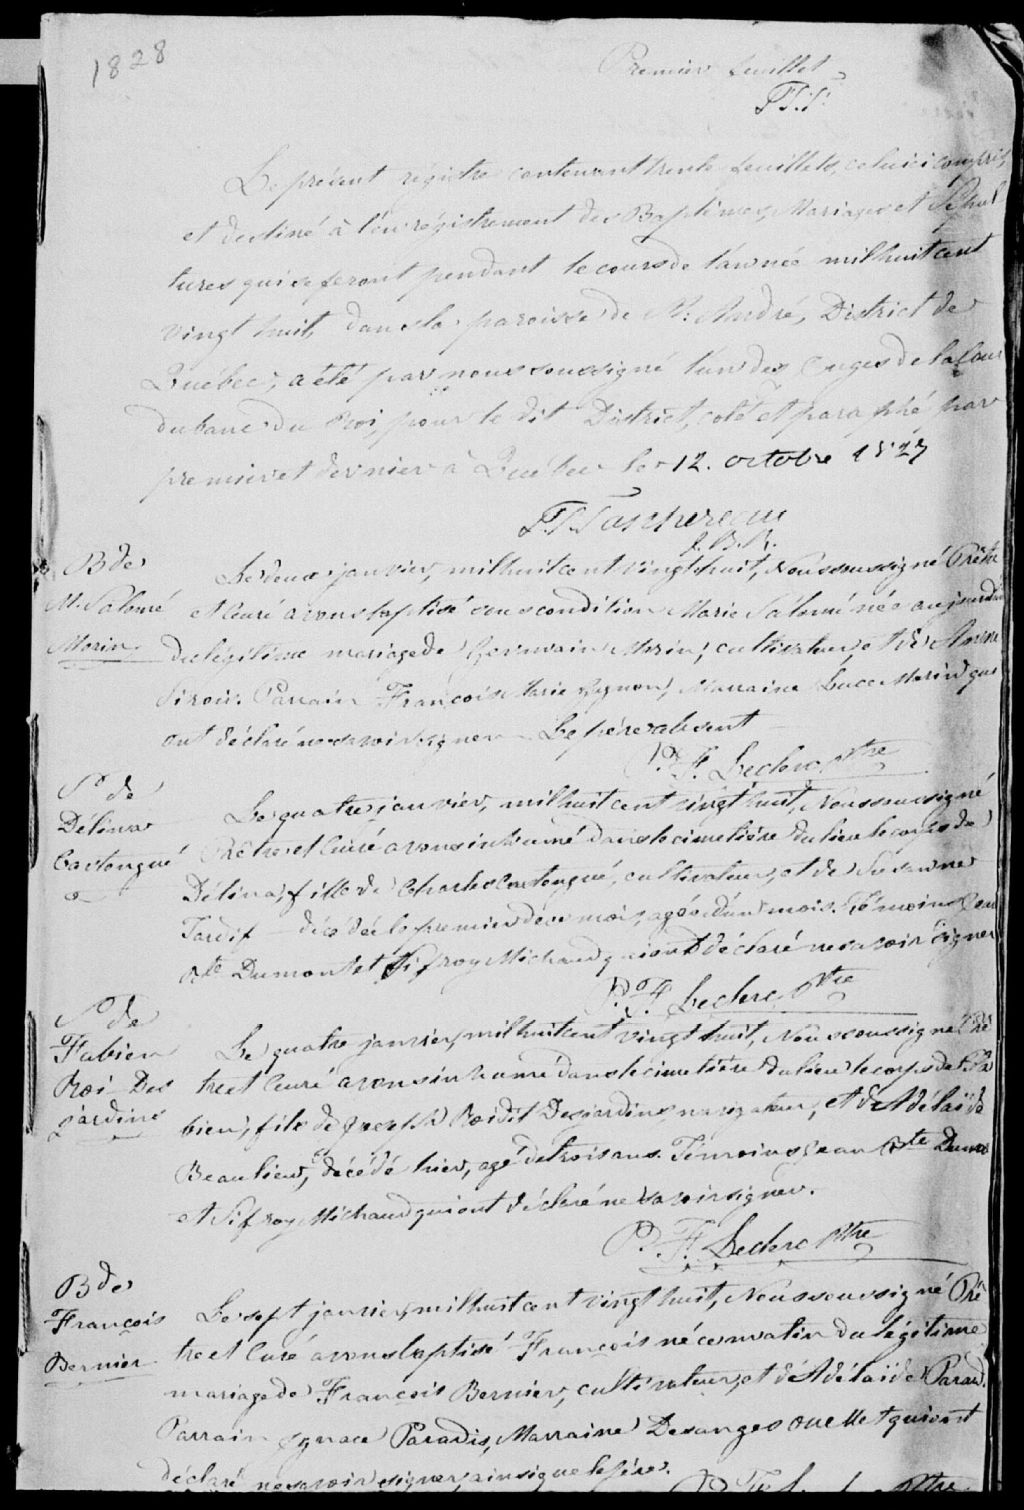 1828
Premier feuillet
T.T.
Le présent régistre contenant trente feuillets, celui ici compris,
et destiné à l'enrégistrement des Baptêmes, Mariages et Sépul
tures qui se feront pendant le cours de l'année mil huit cent
vingt huit, dans la paroisse de St. André, District de
Québec, a été par nous soussigné l'un des Juges de la Cour
du banc du Roi, pour le dit District, coté et paraphé par
premier et dernier à Québec le 12. octobre 1827
T.T. Taschereau
J.B.R.
B de
M. Salomé
Morin
Le deux janvier, mil huit cent vingt huit, Nous soussigné Prêtre
et Curé avons baptisé sous condition Marie Salomé née aujourdhui
du légitime mariage de Germain Morin, cultivateur, et de
Sirois. Parrain François Marie Gagnon, Marraine Luce Morin qui
ont déclaré ne savoir signer. Le père absent
P. F. Leclerc Ptre
S de
Délina
Castongué
Le quatre janvier, mil huit cent vingt huit, Nous soussigné
Prêtre et Curé avons inhumé dans le cimetière du lieu le corps de
Délina, fille de Charles Castongué, cultivateur, et de Susanne
Tardif décédée le premier de ce mois, agée d'un mois. Témoins Jean
Bte Dumont et Sifroy Michaud qui ont déclaré ne savoir signer
P. F. Leclerc Ptre
S de
Fabien
Roi Des
jardins
Le quatre janvier, mil huit cent vingt huit, Nous soussigné Prê
tre et Curé avons inhumé dans le cimetière du lieu le corps de Fa
bien, fils de Joseph Roi dit Desjardins, navigateur, et de Adélaïde
Beaulieu, décédé hier, agé de trois ans. Témoins Jean Bte Dumont
et Sifroy Michaud qui ont déclaré ne savoir signer.
P. F. Leclerc Ptre
B de
François
Bernier
Le sept janvier, mil huit cent vingt huit, Nous soussigné Prê
tre et Curé avons baptisé François né ce matin du légitime
mariage de François Bernier, cultivateur, et de Adélaïde Parad.
Parrain Ignace Paradis, Marraine Desanges Ouellet qui ont
déclaré ne savoir signer, ainsi que le père.
P. F. Leclerc Ptre